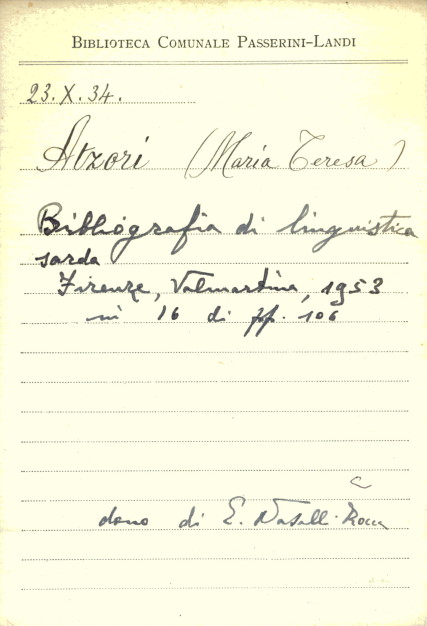 BIBLIOTECA COMUNALE PASSERINI-LANDI
23.X.34.
Atzori (Maria Teresa)
Bibliografia di linguistica
sarda
Firenze, Valmartina, 1953
in 16 di pp. 106
dono di E. Nasalli-Rocca